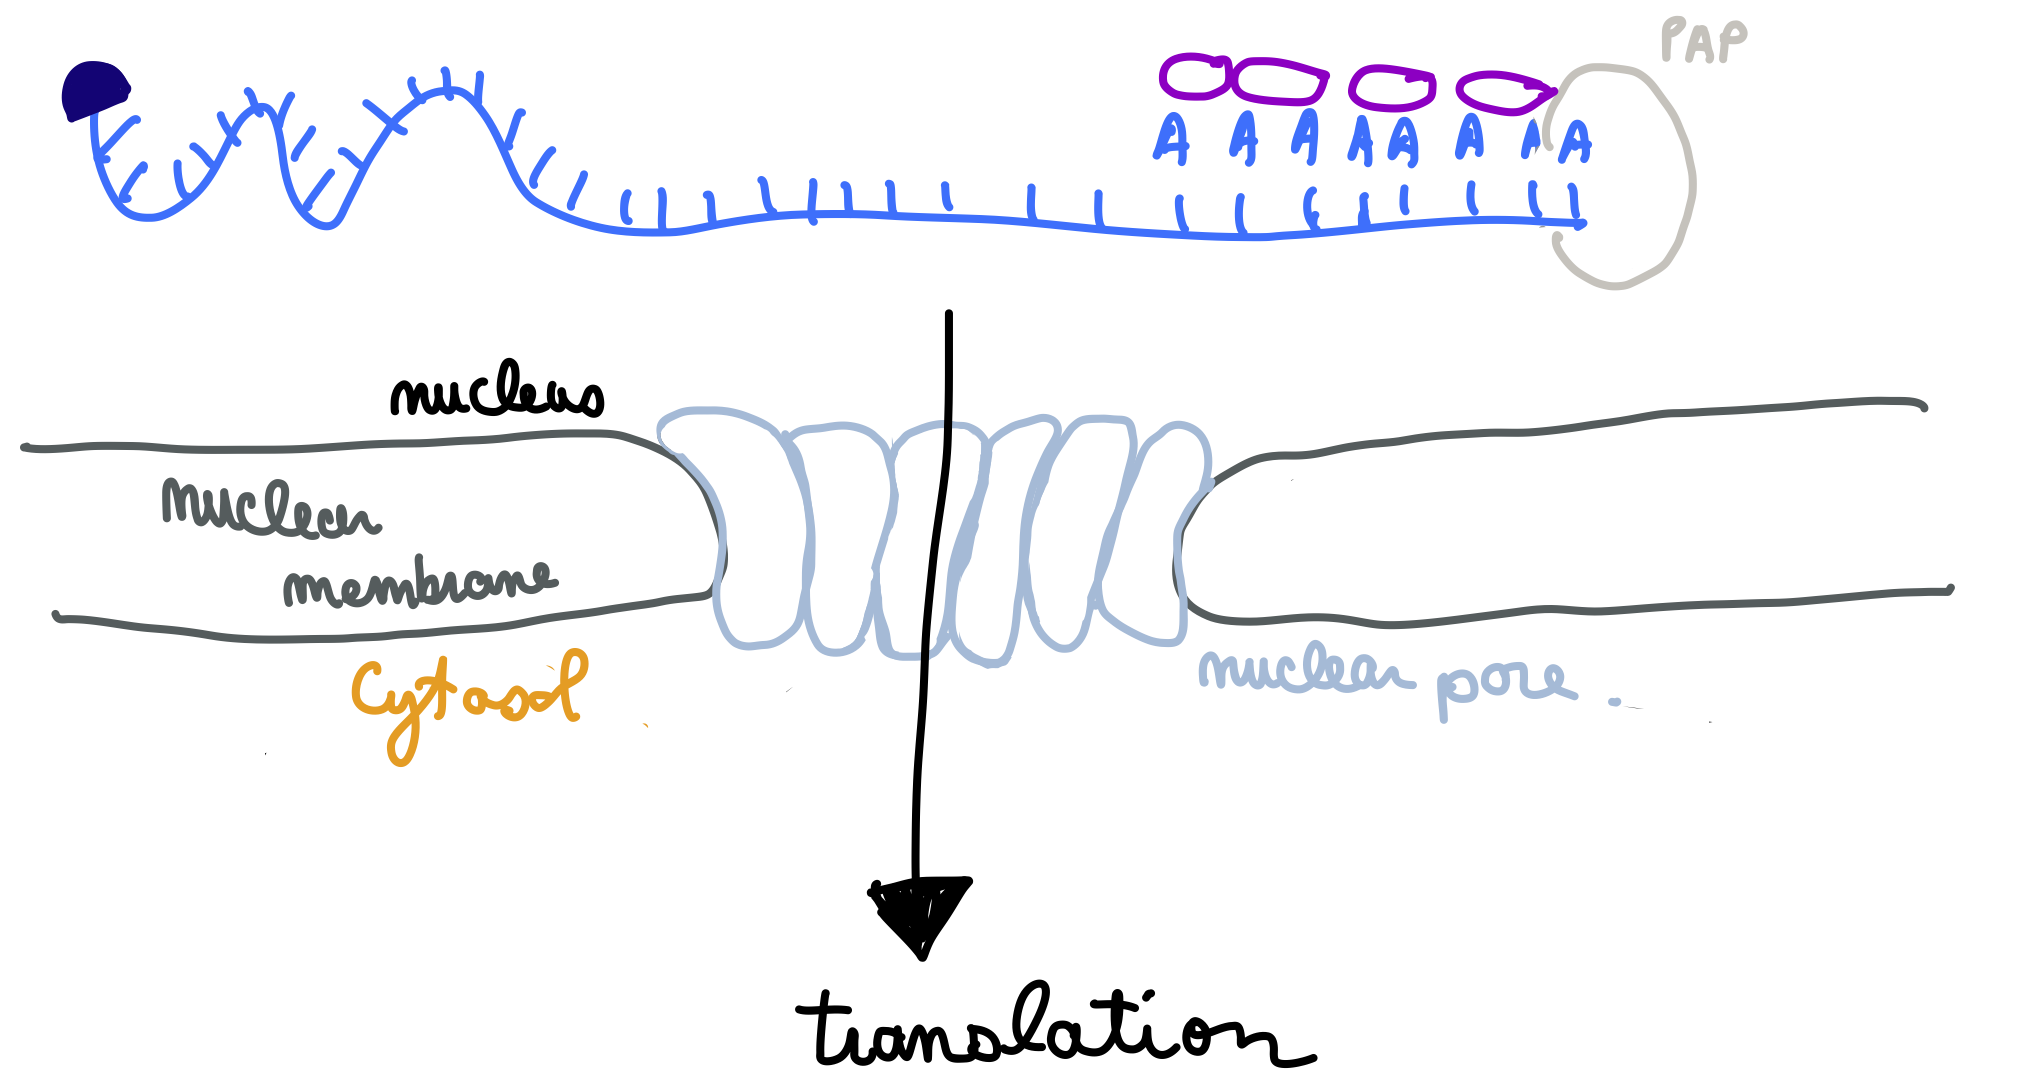 PAP
A A A A A A A A
nucleus
nuclear
membrane
Cytosol
nuclear pore.
translation